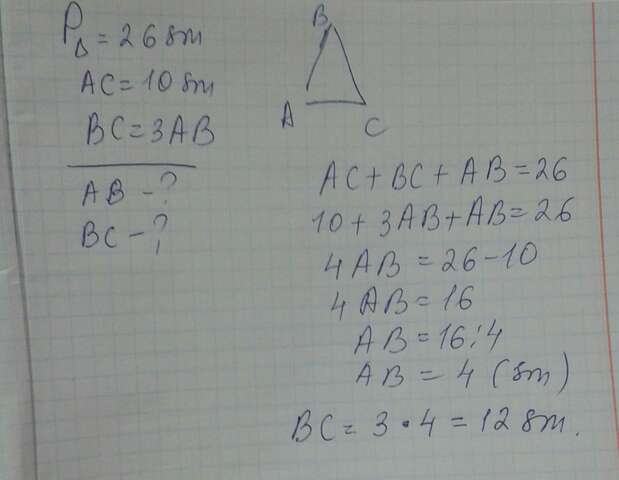 P△ = 26 sm
AC = 10 sm
BC = 3AB
AB - ?
BC - ?
B
A
C
AC + BC + AB = 26
10 + 3AB + AB = 26
4AB = 26 - 10
4AB = 16
AB = 16 : 4
AB = 4 (sm)
BC = 3 · 4 = 12 sm.